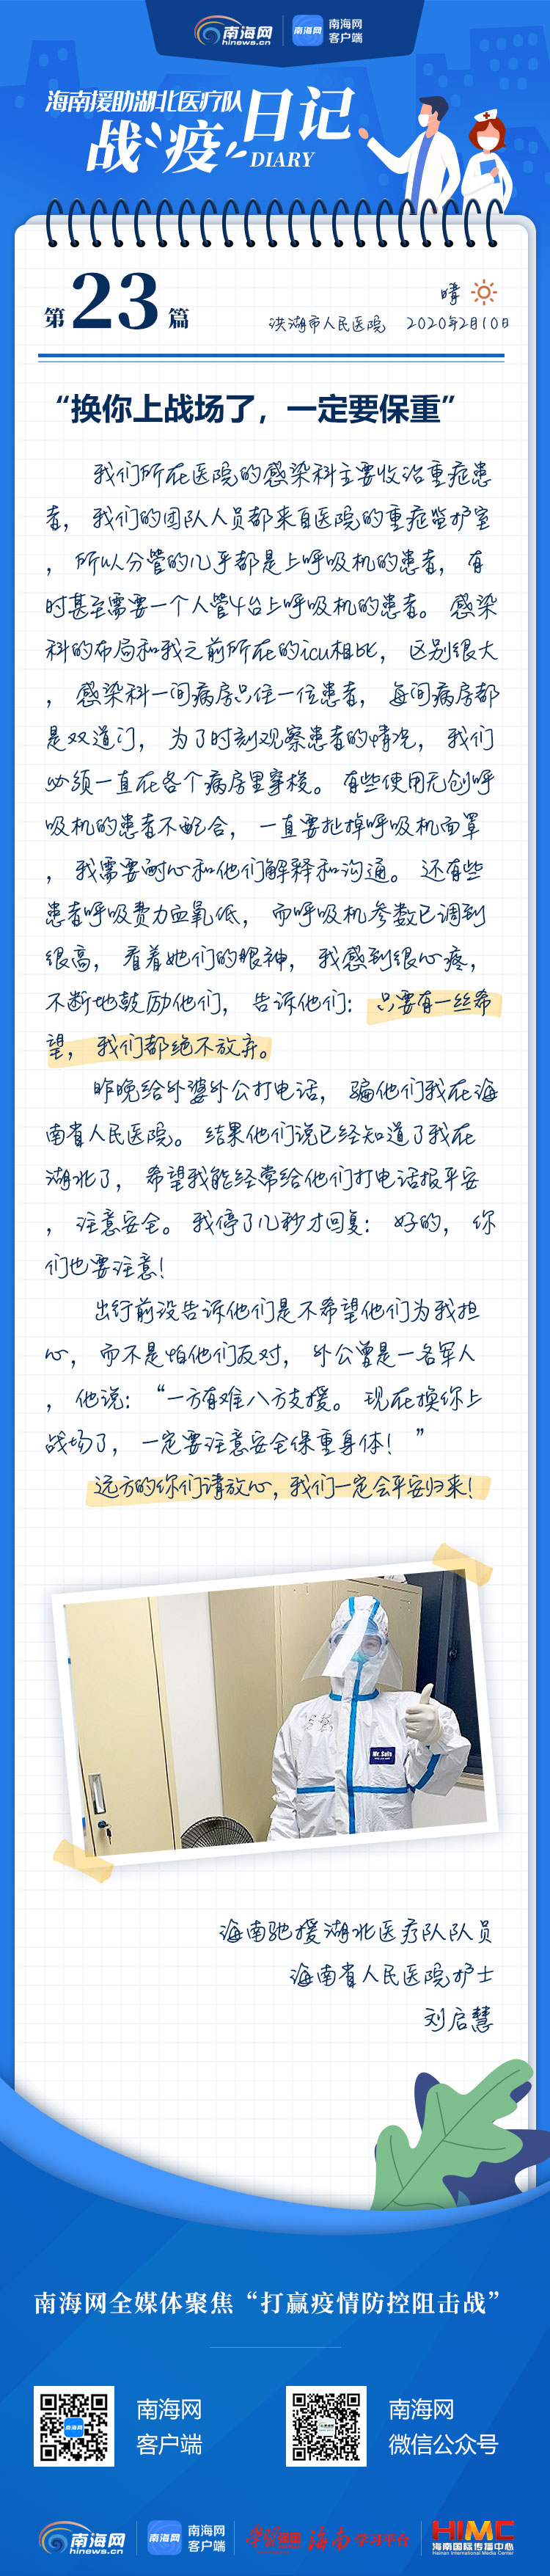 南海网
hinews.cn
南海网
南海网
客户端
海南援助湖北医疗队
战疫日记
DIARY
第23篇
晴
洪湖市人民医院 2020年2月10日
“换你上战场了，一定要保重”
我们所在医院的感染科主要收治重症患
者，我们的团队人员都来自医院的重症监护室
，所以分管的几乎都是上呼吸机的患者，有
时甚至需要一个人管4台上呼吸机的患者。感染
科的布局和我之前所在的icu相比，区别很大
，感染科一间病房只住一位患者，每间病房都
是双道门，为了时刻观察患者的情况，我们
必须一直在各个病房里穿梭。有些使用无创呼
吸机的患者不配合，一直要扯掉呼吸机面罩
，我需要耐心和他们解释和沟通。还有些
患者呼吸费力血氧低，而呼吸机参数已调到
很高，看着她们的眼神，我感到很心疼，
不断地鼓励他们，告诉他们：只要有一丝希
望，我们都绝不放弃。
昨晚给外婆外公打电话，骗他们我在海
南省人民医院。结果他们说已经知道了我在
湖北了，希望我能经常给他们打电话报平安
，注意安全。我停了几秒才回复：好的，你
们也要注意！
出行前没告诉他们是不希望他们为我担
心，而不是怕他们反对，外公曾是一名军人
，他说：“一方有难八方支援。现在换你上
战场了，一定要注意安全保重身体！”
远方的你们请放心，我们一定会平安归来！
Mr. Safe
海南驰援湖北医疗队队员
海南省人民医院护士
刘启慧
南海网全媒体聚焦“打赢疫情防控阻击战”
南海网
客户端
南海网
微信公众号
南海网
hinews.cn
南海网
南海网
客户端
学习强国
海南学习平台
HIMC
海南国际传播中心
Hainan International Media Center